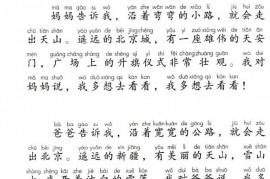 mā ma gào sù wǒ yán zhe wān wān de xiǎo lù jiù huì zǒu
妈妈告诉我，沿着弯弯的小路，就会走
chū tiān shān yáo yuǎn de běi jīng chéng yǒu yí zuò xióng wěi de tiān ān
出天山。遥远的北京城，有一座雄伟的天安
mén guǎng chǎng shàng de shēng qí yí shì fēi cháng zhuàng guān wǒ duì
门，广场上的升旗仪式非常壮观。我对
mā ma shuō wǒ duō xiǎng qù kàn kan wǒ duō xiǎng qù kàn kan
妈妈说，我多想去看看，我多想去看看！
bà ba gào sù wǒ yán zhe kuān kuān de gōng lù jiù huì zǒu
爸爸告诉我，沿着宽宽的公路，就会走
chū běi jīng yáo yuǎn de xīn jiāng yǒu měi lì de tiān shān xuě shān
出北京。遥远的新疆，有美丽的天山，雪山